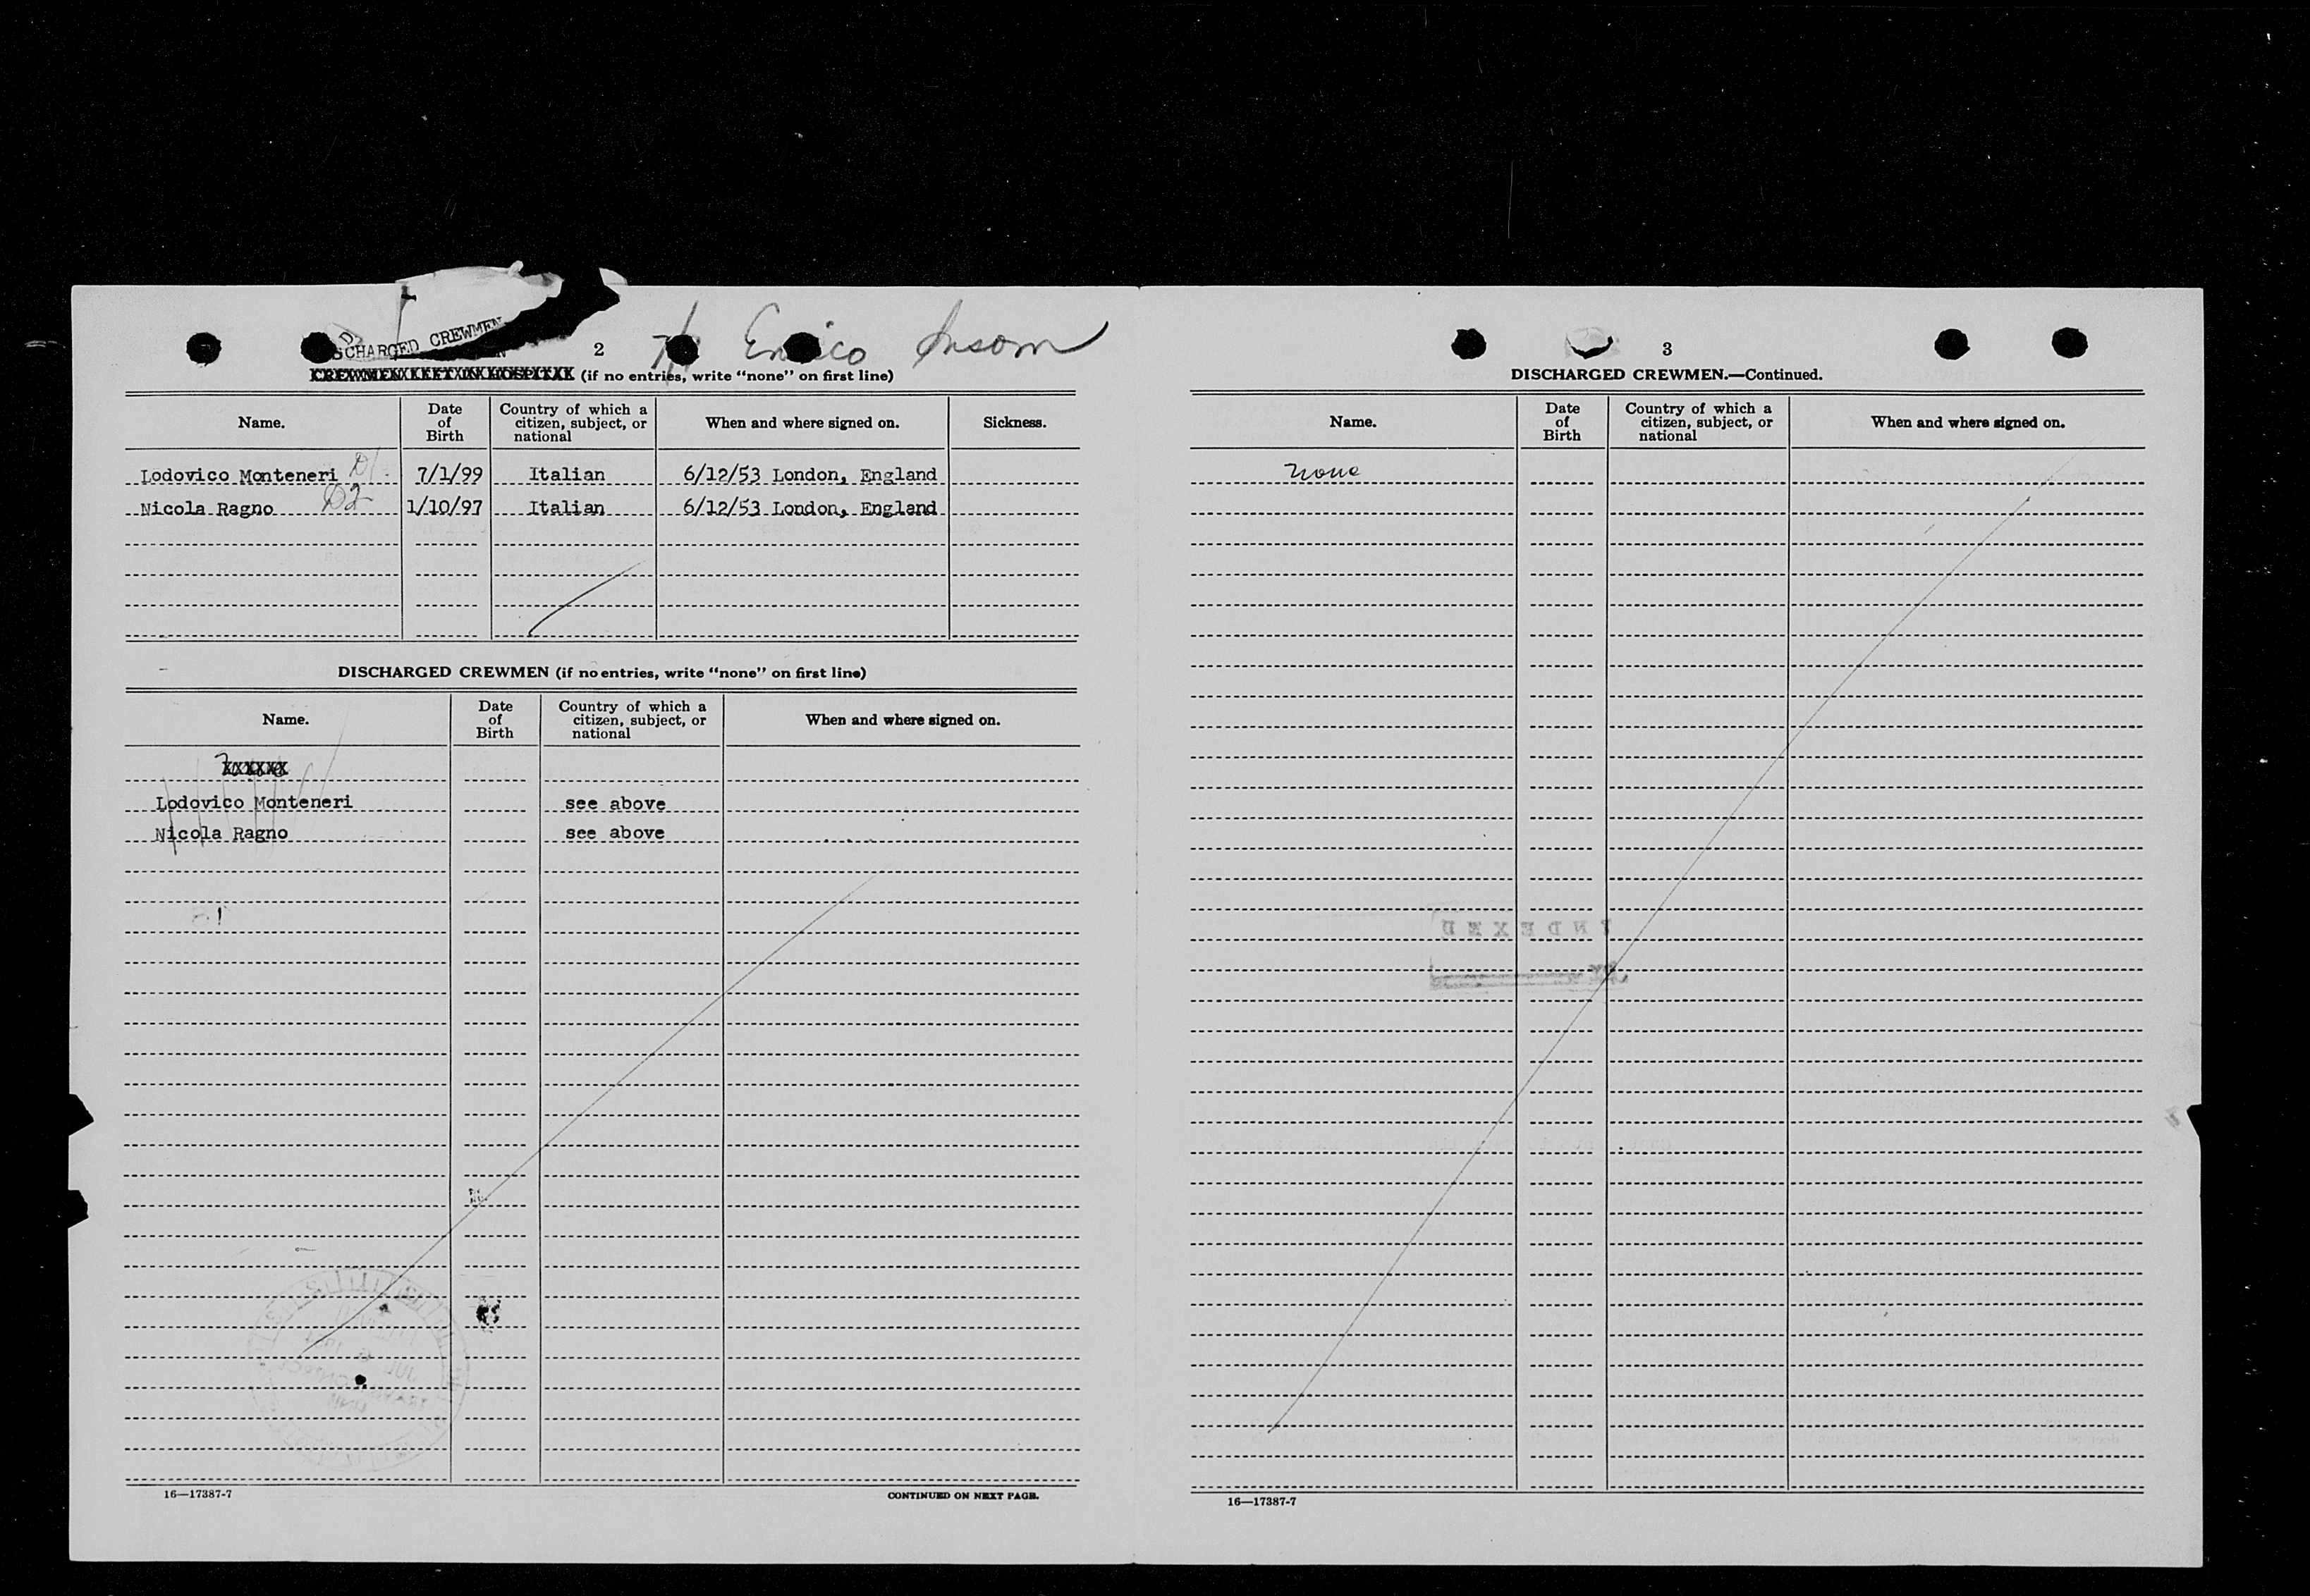 DISCHARGED CREWMEN
2 Enrico Insom
CREWMEN LEFT IN HOSPITAL (if no entries, write “none” on first line)
Name. Date of Birth Country of which a citizen, subject, or national When and where signed on. Sickness.
Lodovico Monteneri D1 7/1/99 Italian 6/12/53 London, England
Nicola Ragno D2 1/10/97 Italian 6/12/53 London, England
DISCHARGED CREWMEN (if no entries, write “none” on first line)
Name. Date of Birth Country of which a citizen, subject, or national When and where signed on.
XXXXXX
Lodovico Monteneri see above
Nicola Ragno see above
16—17387-7 CONTINUED ON NEXT PAGE.
3
DISCHARGED CREWMEN.—Continued.
Name. Date of Birth Country of which a citizen, subject, or national When and where signed on.
none
INDEXED
16—17387-7